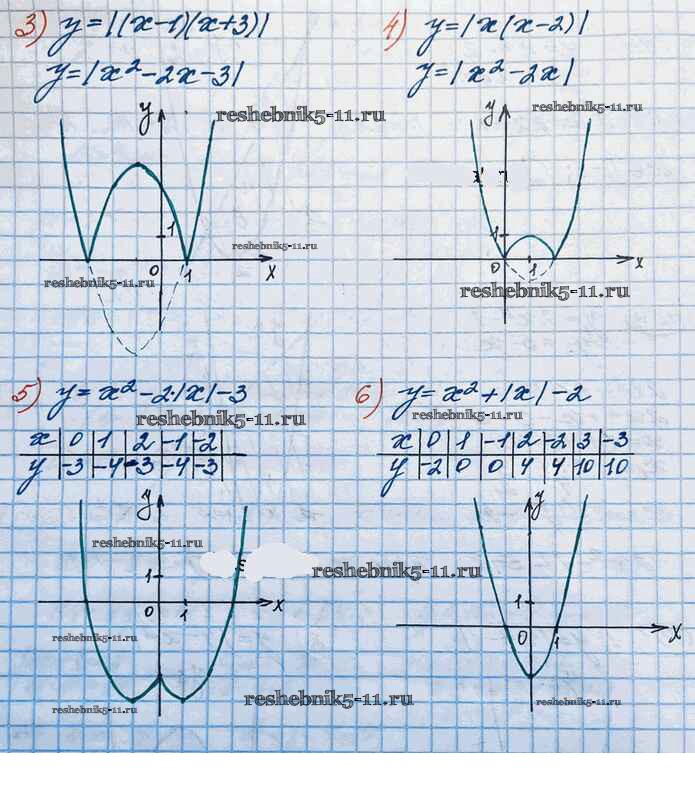 3) y=|(x-1)(x+3)|
4) y=|x(x-2)|
y=|x²-2x-3|
y=|x²-2x|
y
reshebnik5-11.ru
y
reshebnik5-11.ru
1
reshebnik5-11.ru
1
reshebnik5-11.ru
0 1 x
0 1 x
reshebnik5-11.ru
5) y=x²-2·|x|-3
6) y=x²+|x|-2
reshebnik5-11.ru
reshebnik5-11.ru
x | 0 | 1 | 2 | -1 | -2
y | -3 | -4 | -3 | -4 | -3
x | 0 | 1 | -1 | 2 | -2 | 3 | -3
y | -2 | 0 | 0 | 4 | 4 | 10 | 10
y
y
reshebnik5-11.ru
reshebnik5-11.ru
1
0 1 x
1
0 1 x
reshebnik5-11.ru
reshebnik5-11.ru
reshebnik5-11.ru
reshebnik5-11.ru